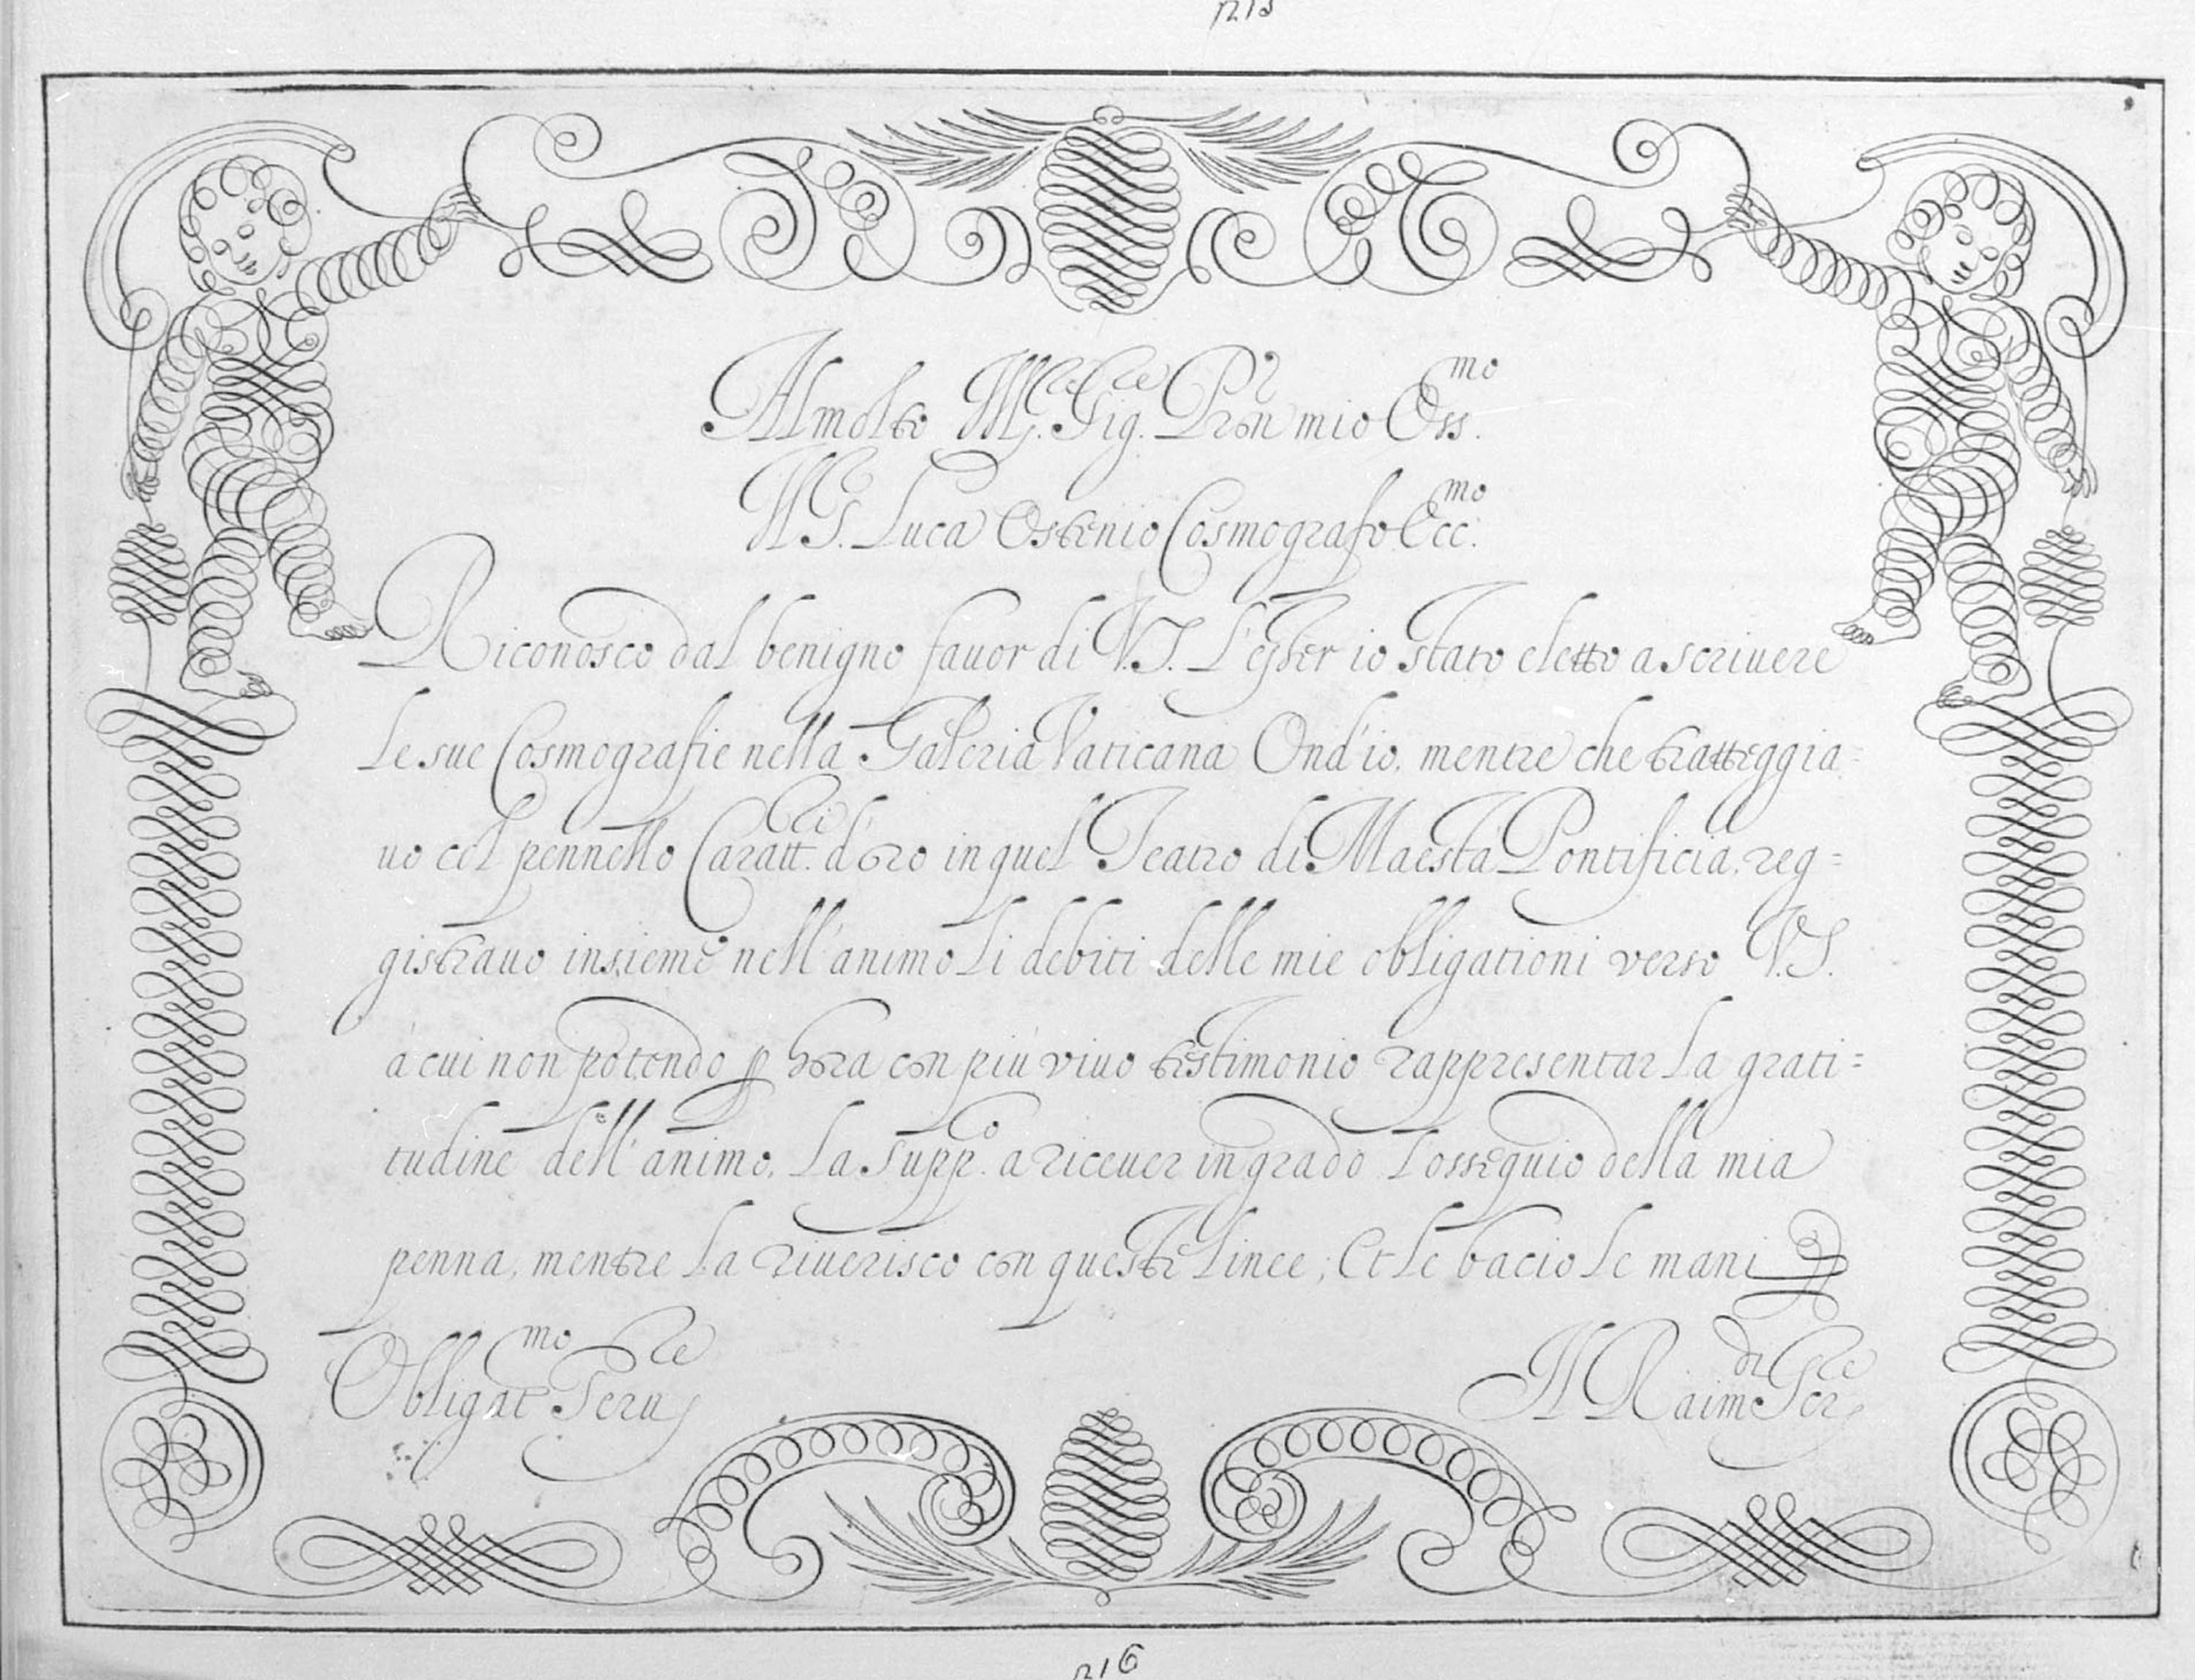 n15
Al molto Mg.re Sig.re Pron mio Oss.mo
Il S. Luca Ostenio Cosmografo Ecc.mo
Riconosco dal benigno fauor di V.S. l'esser io stato eletto a scriuere
le sue Cosmografie nella Galeria Vaticana Ond'io, mentre che tratteggia=
uo col pennello Caratt.ri d'oro in quel Teatro di Maestà Pontificia, reg=
gistrauo insieme nell'animo li debiti delle mie obligationi verso V.S.
à cui non potendo p hora con più viuo testimonio rappresentar la grati=
tudine dell'animo, la supp.o a riceuer in grado l'ossequio della mia
penna, mentre la riuerisco con queste linee; Et le bacio le mani
Obligat.mo Seru.re
Il Raimo di Scr.re
n16